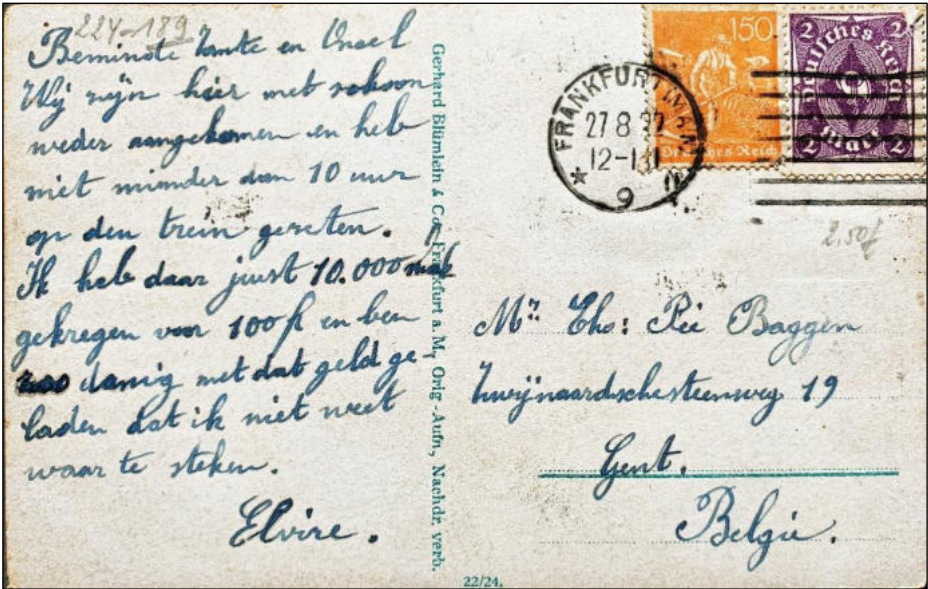 224-189
Beminde Tante en Oncel
Wij zijn hier met schoon
weder aangekomen en heb
niet minder dan 10 uur
op den trein gezeten.
Ik heb daar juist 10.000 mk
gekregen voor 100 fr en ben
zoo danig met dat geld ge-
laden dat ik niet weet
waar te steken.
Elvire.
Gerhard Blümlein & Co., Frankfurt a. M., Orig.-Aufn., Nachdr. verb.
22/24.
150
Deutsches Reich
2 2
Deutsches Reich
Mark
2 2
FRANKFURT (MAIN)
27 8 22
12-1
9
2,50f
Mr: Chs: Pée Baggen
Zwijnaardschesteenweg 19
Gent.
Belgie.